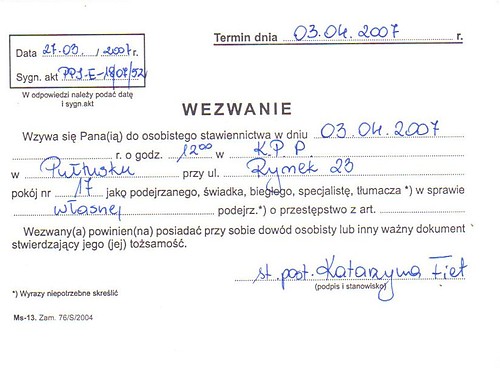 Termin dnia 03.04.2007 r.
Data 27.03. / 2007 r.
Sygn. akt
W odpowiedzi należy podać datę
i sygn.akt
WEZWANIE
Wzywa się Pana(ią) do osobistego stawiennictwa w dniu 03.04.2007
r. o godz. 12 00 w K.P.P.
w Pułtusku przy ul. Rynek 23
pokój nr 17 jako podejrzanego, świadka, biegłego, specjalistę, tłumacza *) w sprawie
własnej podejrz.*) o przestępstwo z art.
Wezwany(a) powinien(na) posiadać przy sobie dowód osobisty lub inny ważny dokument
stwierdzający jego (jej) tożsamość.
st. post. Katarzyna Fiet
(podpis i stanowisko)
*) Wyrazy niepotrzebne skreślić
Ms-13. Zam. 76/S/2004